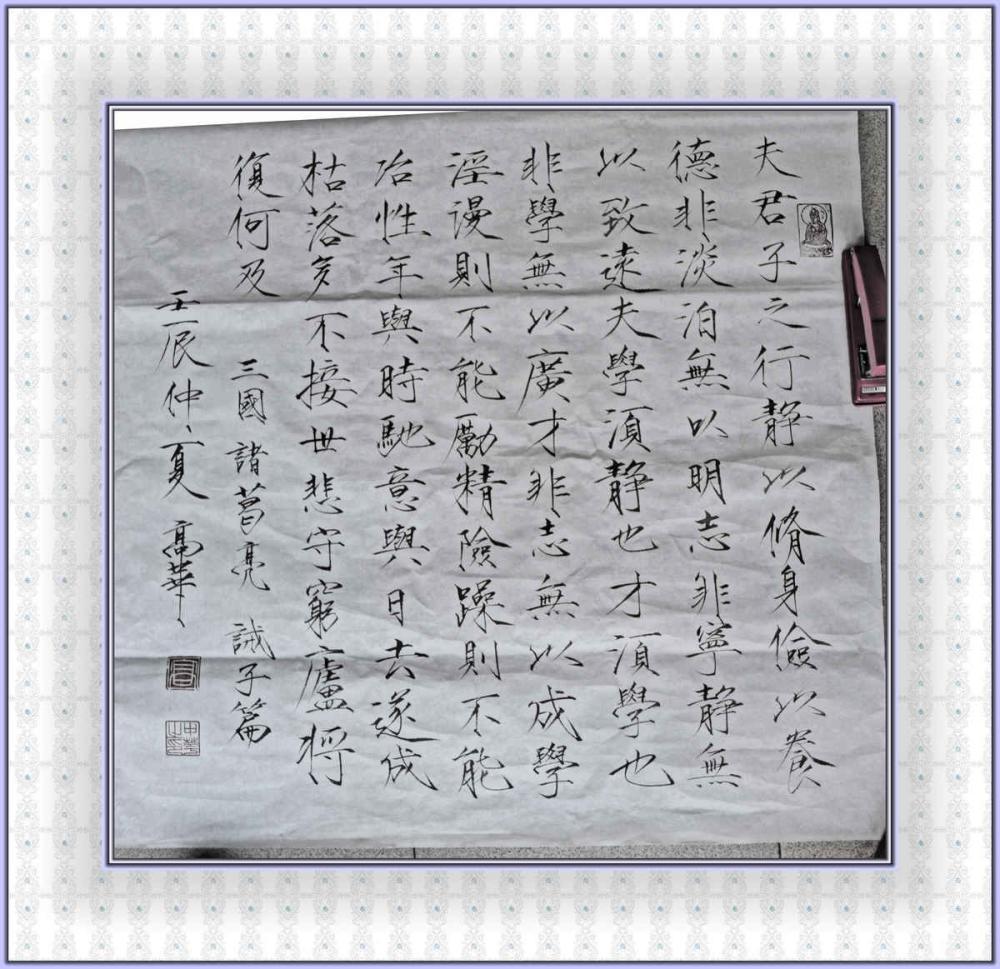 夫君子之行静以脩身儉以養
德非淡泊無以明志非寧静無
以致遠夫學湏静也才湏學也
非學無以廣才非志無以成學
淫谩則不能勵精險躁則不能
冶性年與時馳意與日去遂成
枯落多不接世悲守窮廬將
復何及 三國 諸葛亮 誡子篇
壬辰仲夏 高華